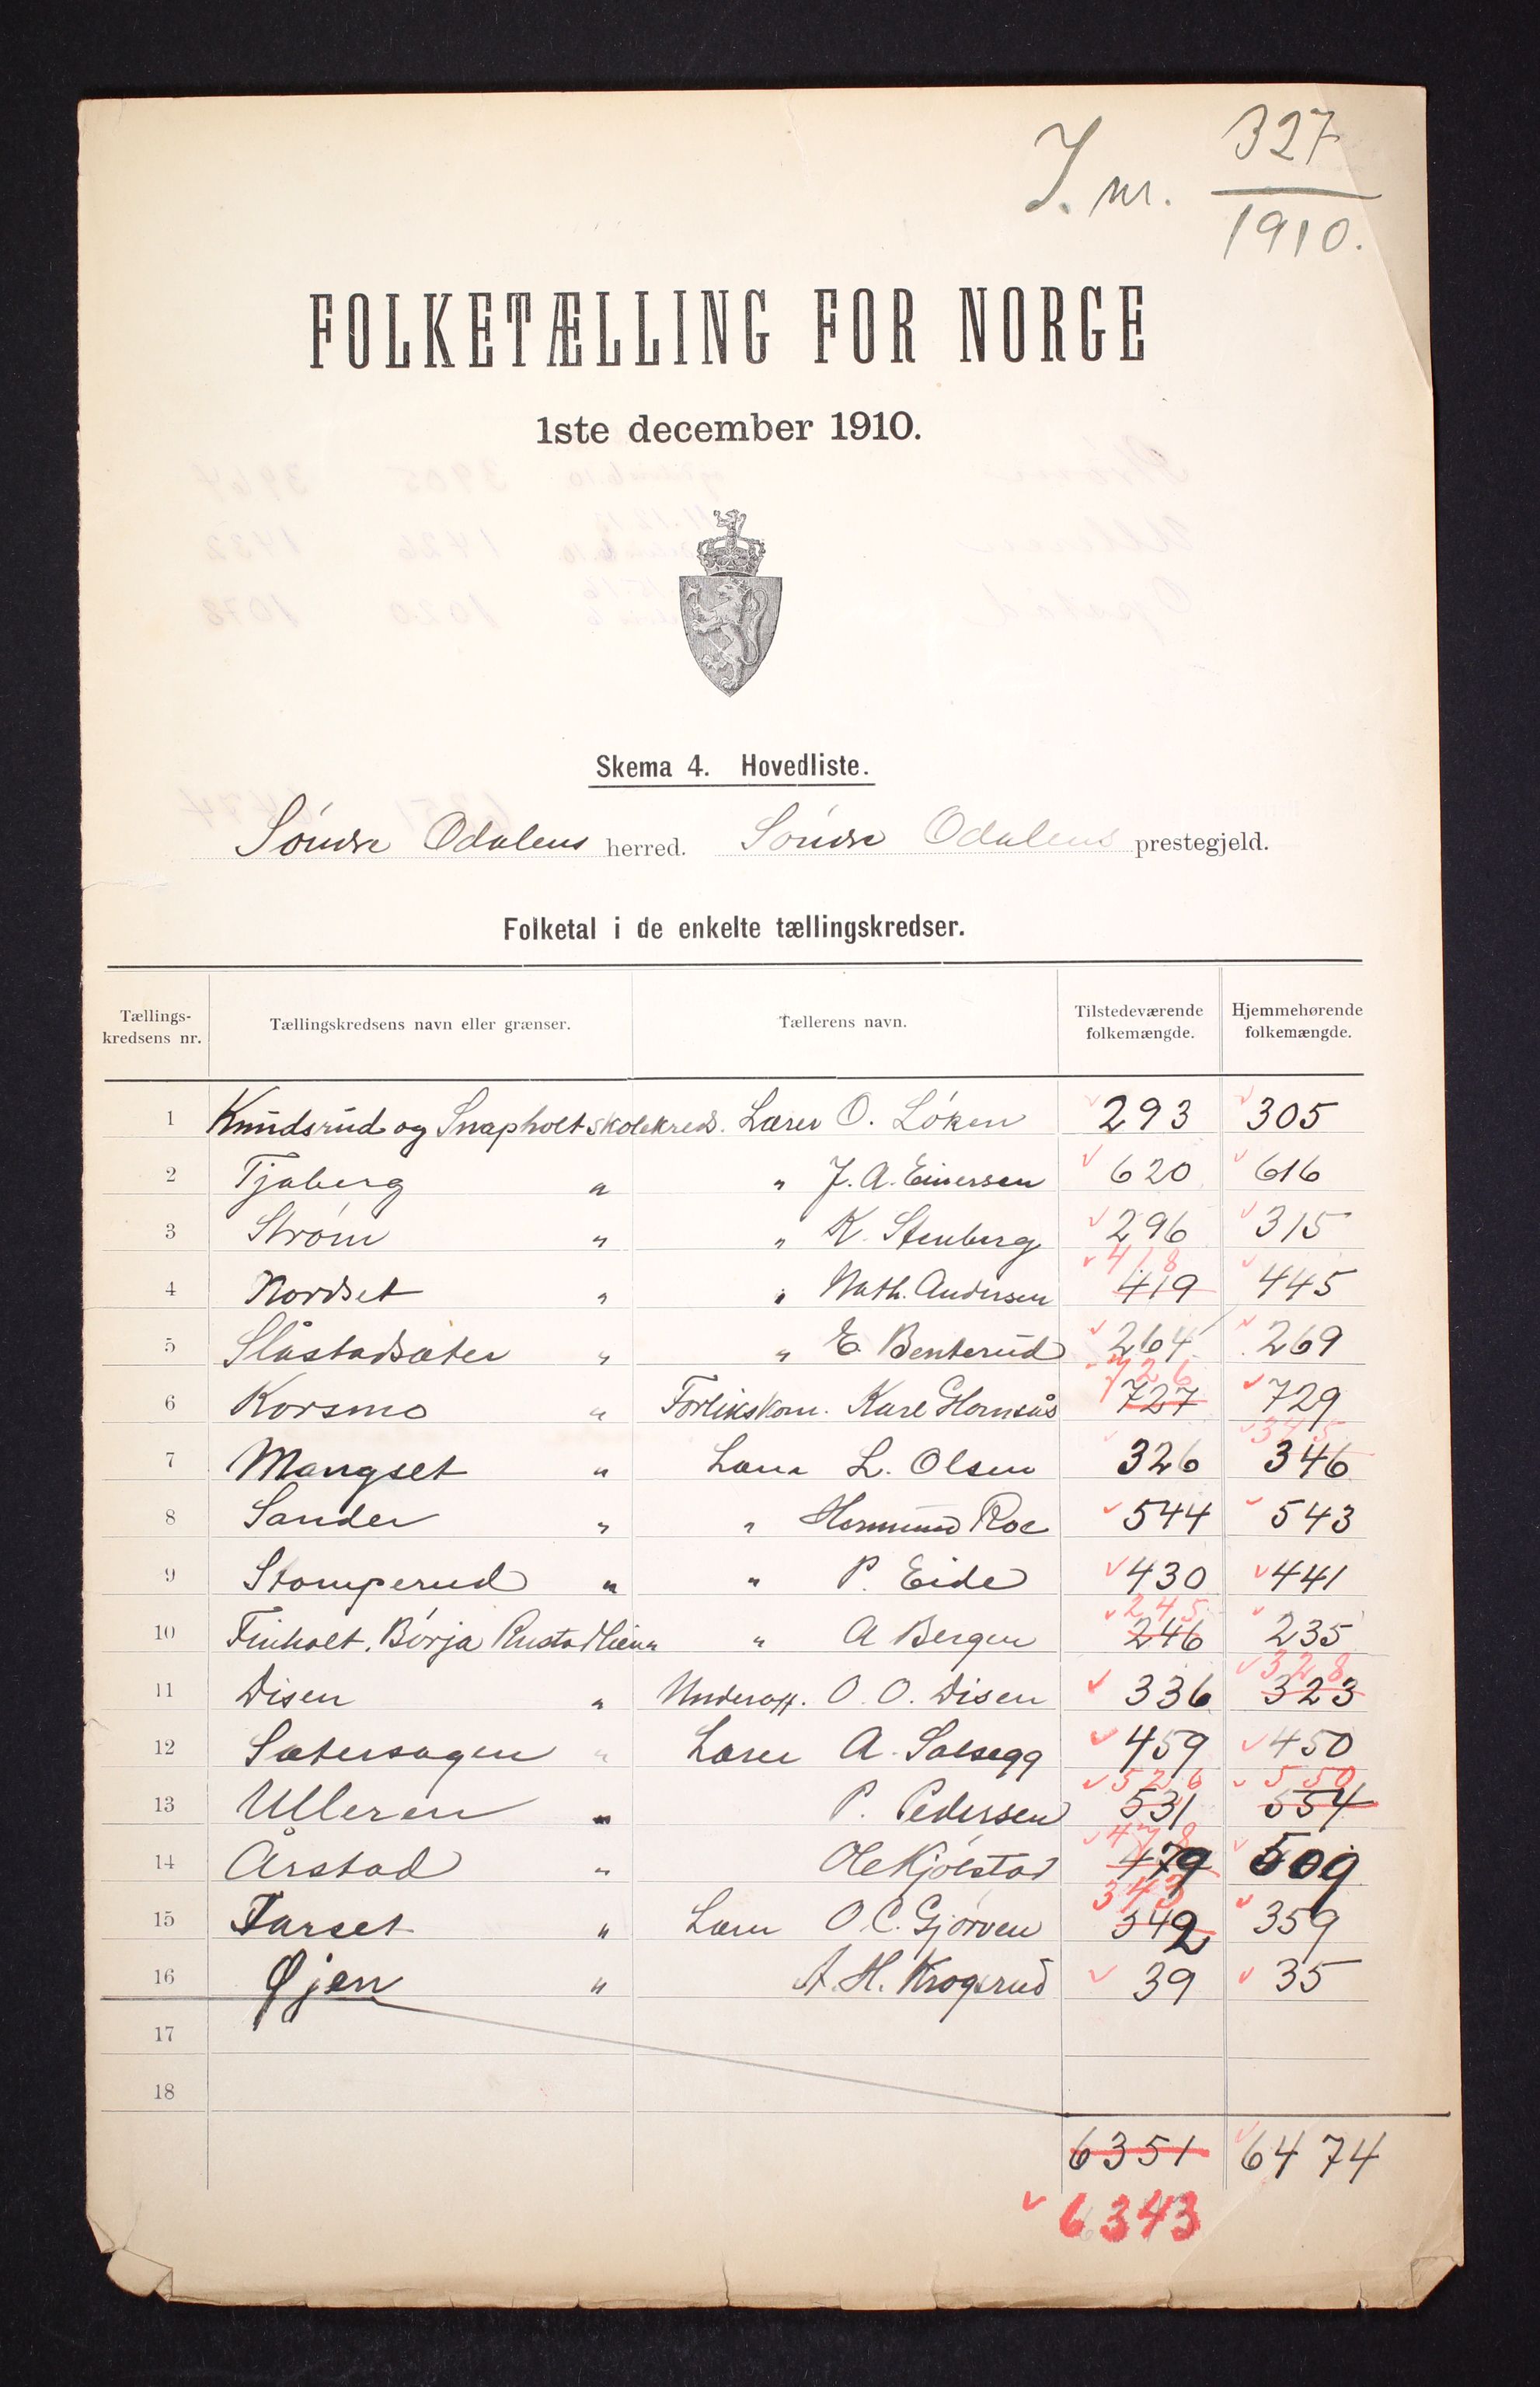 J. nr. 327
1910.
FOLKETÆLLING FOR NORGE
1ste december 1910.
Skema 4. Hovedliste.
Søndre Odalens herred. Søndre Odalens prestegjeld.
Folketal i de enkelte tællingskredser.
Tællings-kredsens nr. Tællingskredsens navn eller grænser. Tællerens navn. Tilstedeværende folkemængde. Hjemmehørende folkemængde.
1 Knudsrud og Snapholt skolekreds. Lærer O. Løken 293 305
2 Tjaberg " " J. A. Einersen 620 616
3 Strøm " " K. Stenberg 296 315
418
4 Nordset " " Nath. Andersen 419 445
5 Slåstadsæter " " E. Benterud 264 269
726
6 Korsmo " Forlikskom. Karl 727 729
345
7 Mangset " Lærer L. Olsen 326 346
8 Sander " " Roe 544 543
9 Stomperud " " P. Eide 430 441
245
10 Finholt, Børja " A Bergen 246 235
328
11 Disen " Underoff. O. O. Disen 336 323
12 Sætersagen " Lærer A. Solsegg 459 450
526 550
13 Ulleren " P. Pedersen 531 554
478
14 Årstad " Ole Kjølstad 479 509
343
15 Farset " Lærer O. C. Gjørven 342 359
16 Øjen " A. H. Krogsrud 39 35
17
18
6351 6474
6343